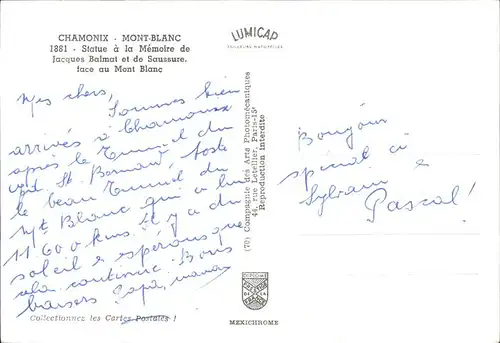 CHAMONIX - MONT-BLANC
1881 - Statue à la Mémoire de
Jacques Balmat et de Saussure,
face au Mont Blanc
LUMICAP
Mes chers,
Sommes bien
arrivés à Chamonix
après le Tunnel du
Gd. St Bernard, reste
le beau Tunnel du
Mt Blanc qui a lui
11.600 kms. Il y a du
soleil & espérons que
cela continue. Bons
baisers Papa, maman
Collectionnez les Cartes Postales !
(70) Compagnie des Arts Photomécaniques
44, rue Letellier, Paris-15e
Reproduction interdite
MEXICHROME
Bonjour
spécial à
Sylvain &
Pascal!